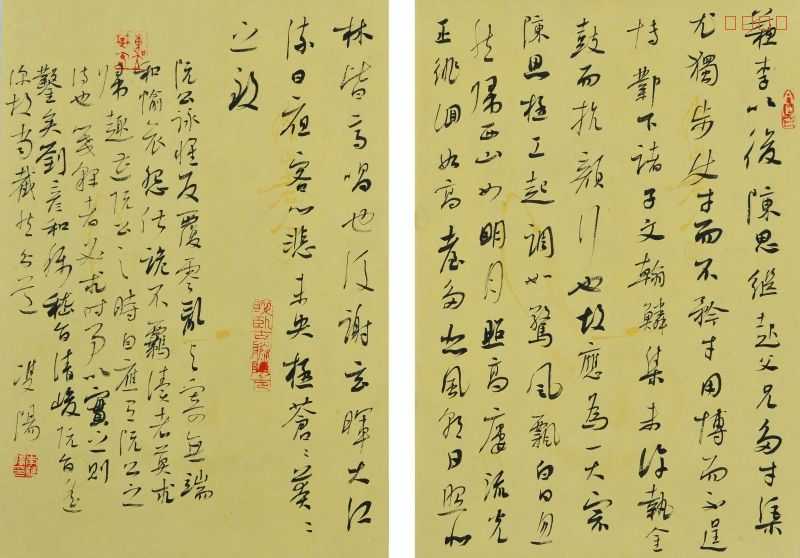 蘇李以後陳思繼起父兄多才渠
尤獨步使才而不矜才用博而不逞
博鄴下諸子文翰鱗集未許執金
鼓而抗顏行也故應為一大宗
陳思極工起調如驚風飄白日忽
然歸西山如明月照高樓流光
正徘徊如高臺多悲風朝日照北
林皆高唱也後謝玄暉大江
流日夜客心悲未央極蒼〻莽〻
之致
阮公詠懷反覆零亂興寄無端
和愉哀怨俶詭不羈讀者莫求
歸趣遭阮公之時自應有阮公之
詩也箋釋者必求時事以實之則
鑿矣劉彥和稱嵇旨清峻阮旨遙
深故當截然分道